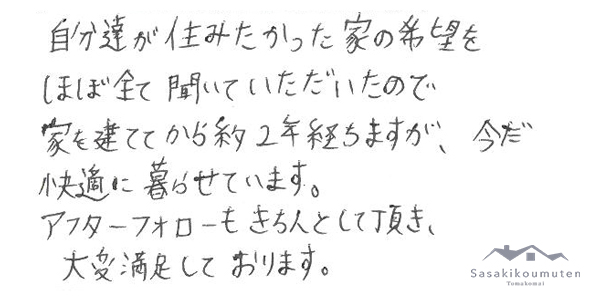 自分達が住みたかった家の希望を
ほぼ全て聞いていただいたので
家を建ててから約2年経ちますが、今だ
快適に暮らせています。
アフターフォローもきちんとして頂き、
大変満足しております。
Sasakikoumuten
Tomakomai